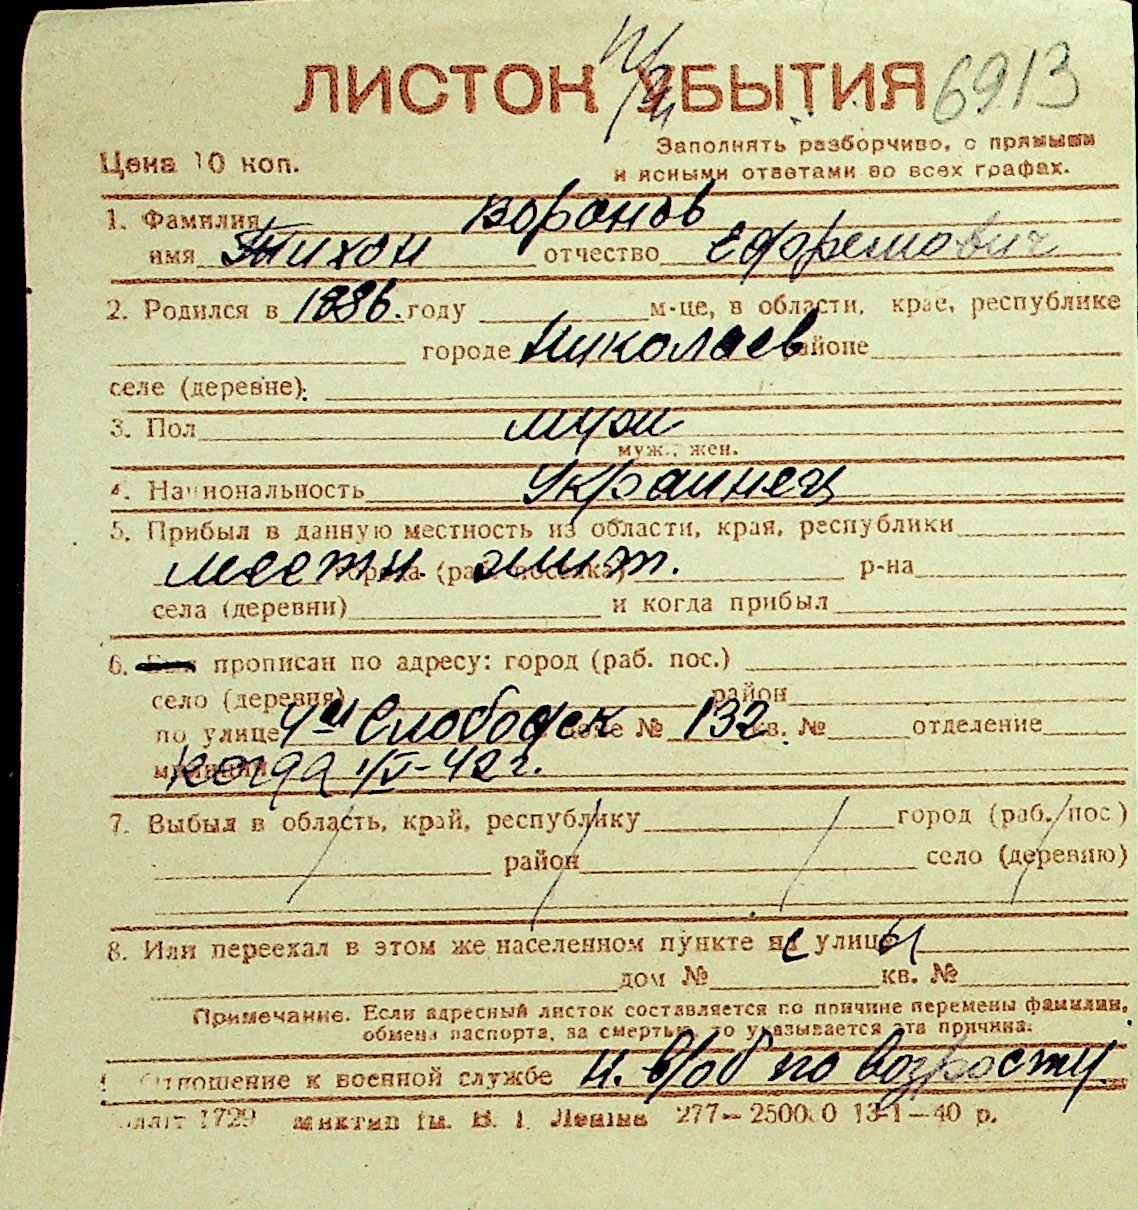 ЛИСТОН УБЫТИЯ 6913
Цена 10 коп.
Заполнять разборчиво, с прямыми
и ясными ответами во всех графах.
1. Фамилия Воронов
имя Тихон отчество Ефремович
2. Родился в 1886. году м-це, в области, крае, республике
городе Николаев районе
селе (деревне):
3. Пол муж
муж., жен.
4. Национальность Украинец
5. Прибыл в данную местность из области, края, республики
местн. жит.
города (раб. поселка) р-на
села (деревни) и когда прибыл
6. прописан по адресу: город (раб. пос.)
село (деревня) район
по улице 4ая Слободск доме № 132 кв. № отделение
милиции когда 1/V-42 г.
7. Выбыл в область, край, республику город (раб. пос)
район село (деревню)
8. Или переехал в этом же населенном пункте на улицы
дом № кв. №
Примечание. Если адресный листок составляется по причине перемены фамилии,
обмена паспорта, за смертью, то указывается эта причина.
Отношение к военной службе н. в/об по возрасту.
1729 Ленина 277—25000 13-1—40 р.